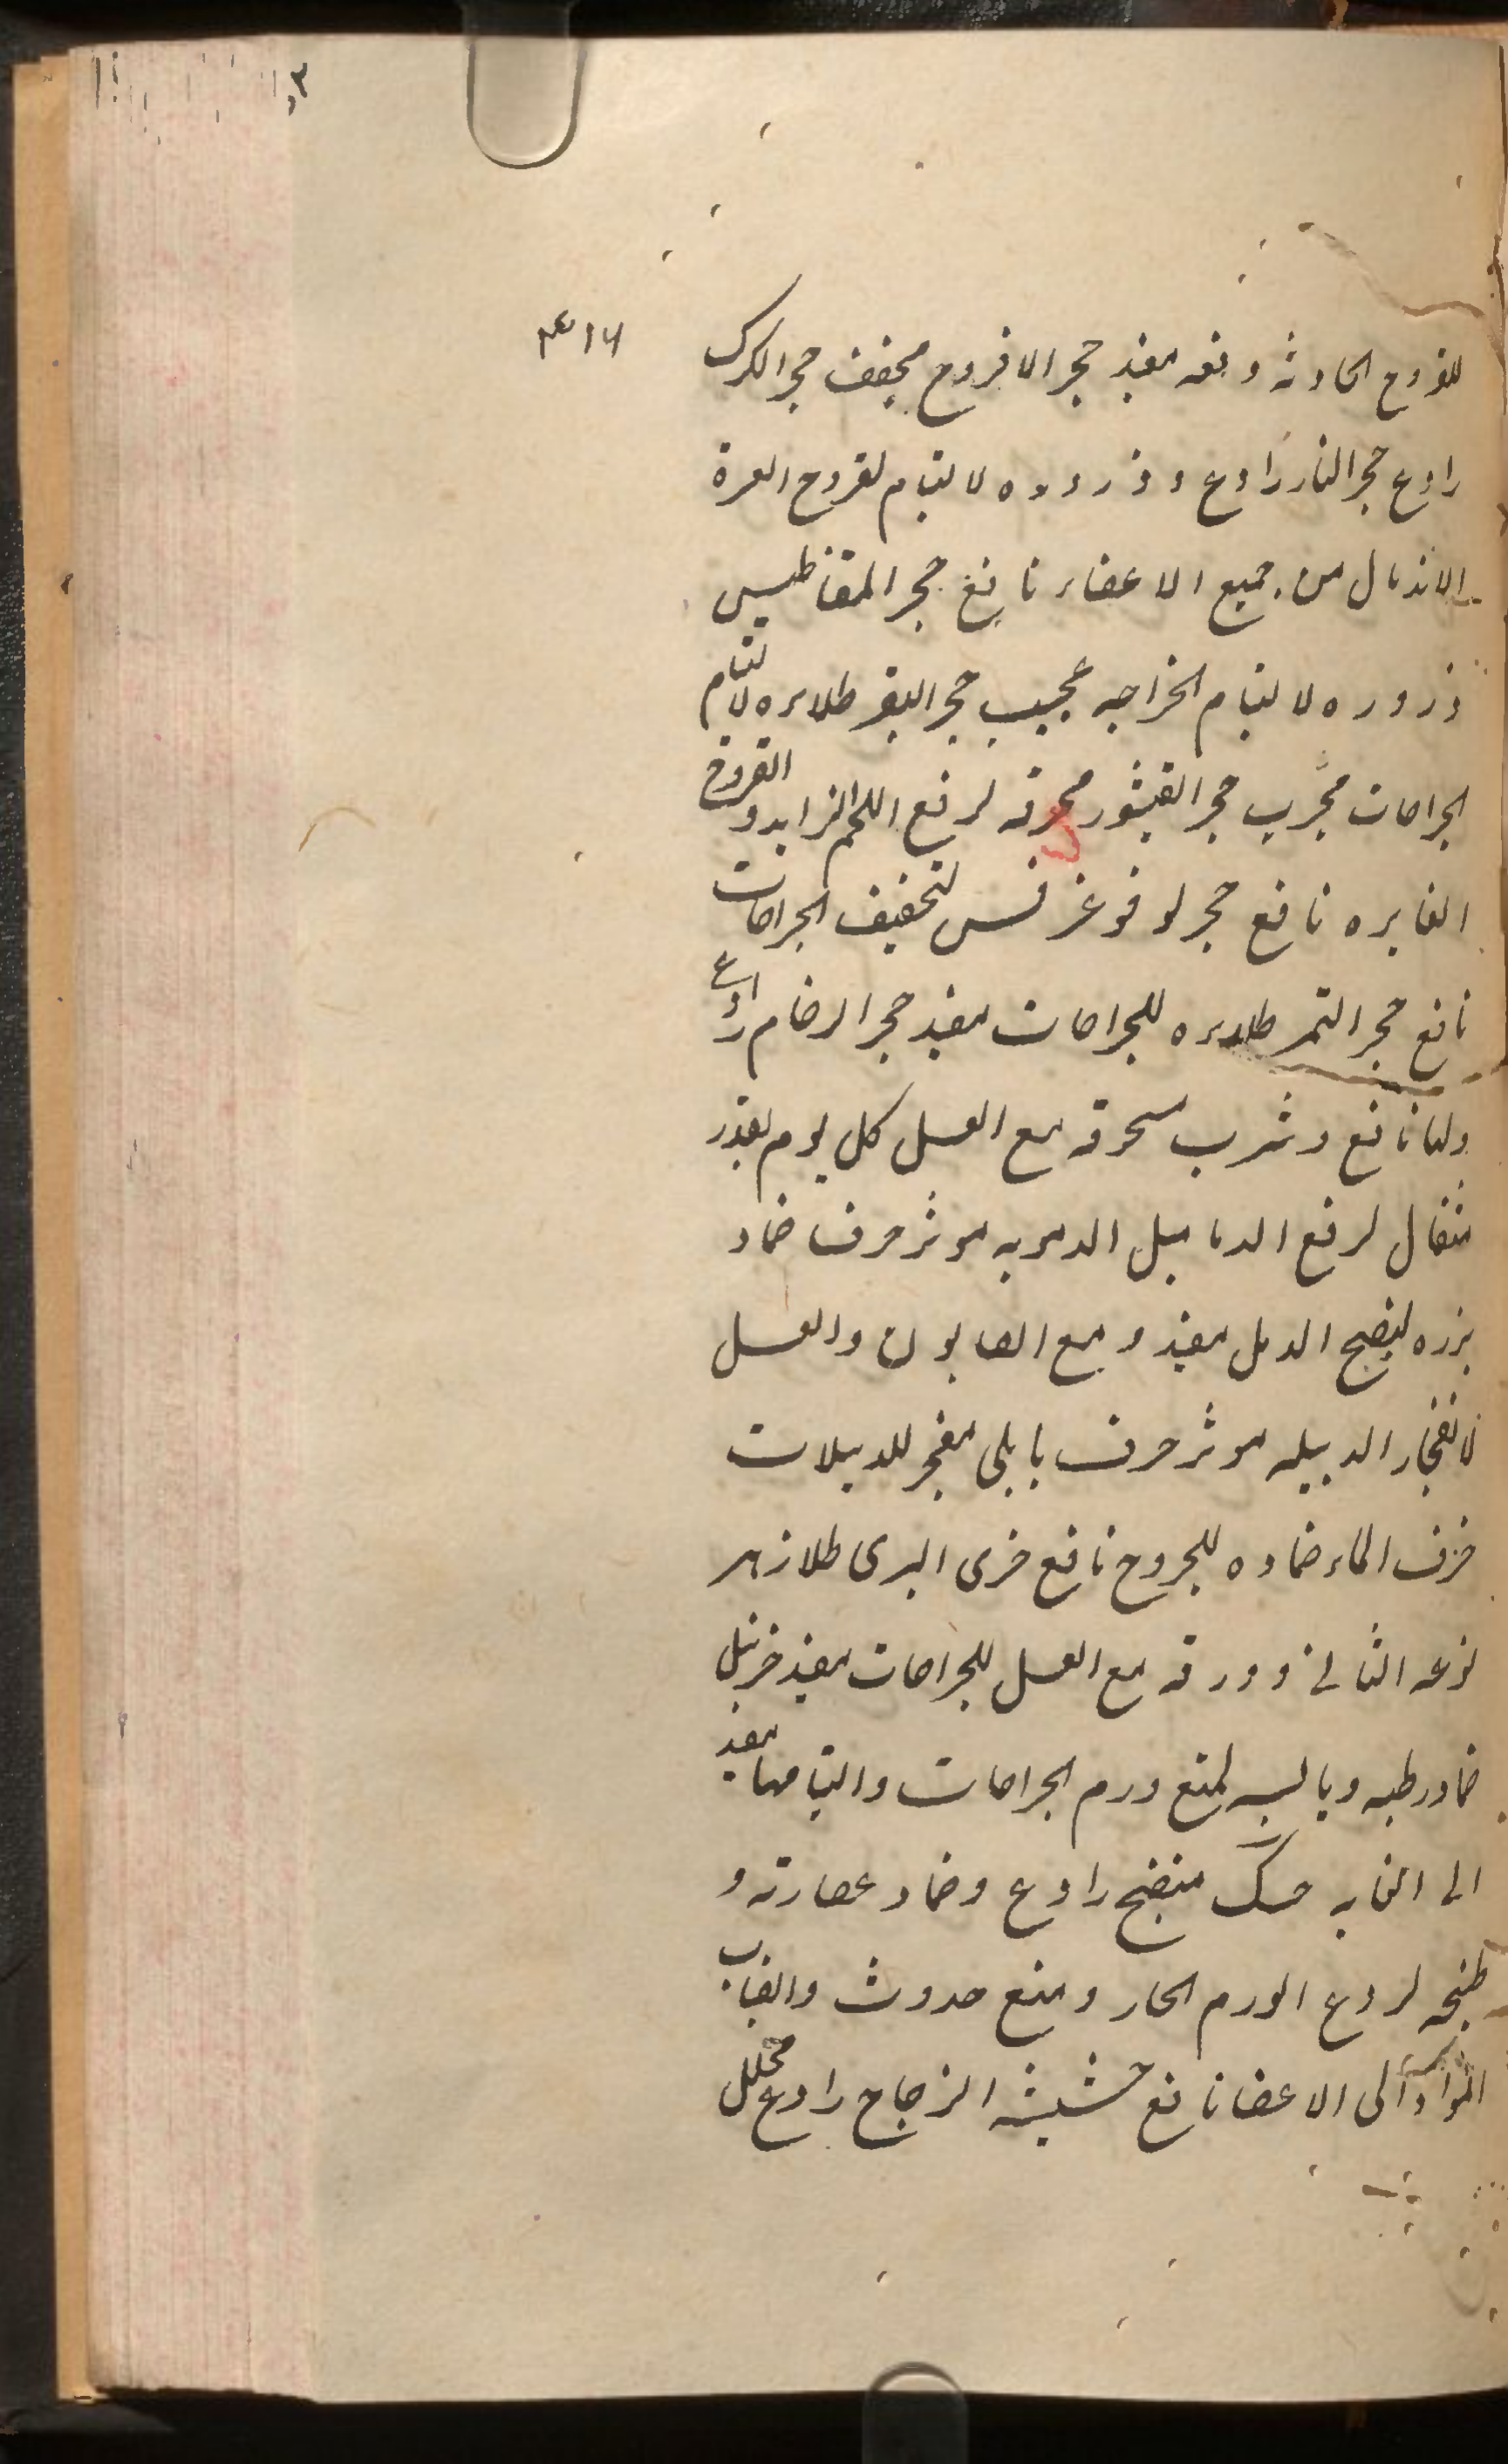 ٤١٦
للقروح الحادثه دفعه مفید حجر الافروح مجفف حجر الکرک
رادع حجر النار رادع و ذروره لالتیام لقروح العسرة
الاندمال من جمیع الاعضاء نافع حجر المقناطیس
ذروره لالتیام الخراجه عجیب حجر البقر طلاءه لالتیام
الجراحات مجرب حجر القیشور محرقه لرفع اللحم الزاید و القروح
الغایره نافع حجر لوفوغرفس لتخفیف الجراحات
نافع حجر التمر طلاءه للجراحات مفید حجر الرخام رادع
ولها نافع و شرب سحوقه مع العسل کل یوم بقدر
مثقال لرفع الدمامیل الدمویه موثر حرف ضماد
بزره لنضج الدمل مفید و مع الصابون والعسل
لانفجار الدبیله موثر حرف بابلی مفجر للدبیلات
خزف الماء ضماده للجروح نافع خزی البری طلا زهر
نوعه الثانی و ورقه مع العسل للجراحات مفید خرنبل
ضماد رطبه و یابسه لمنع ورم الجراحات والتیامها مفید
الی الغایه حسک منضج رادع و ضماد عصارته و
طبخه لردع الورم الحار و منع حدوث وانصباب
المواد الی الاعضا نافع حشیشة الزجاج رادع محلل